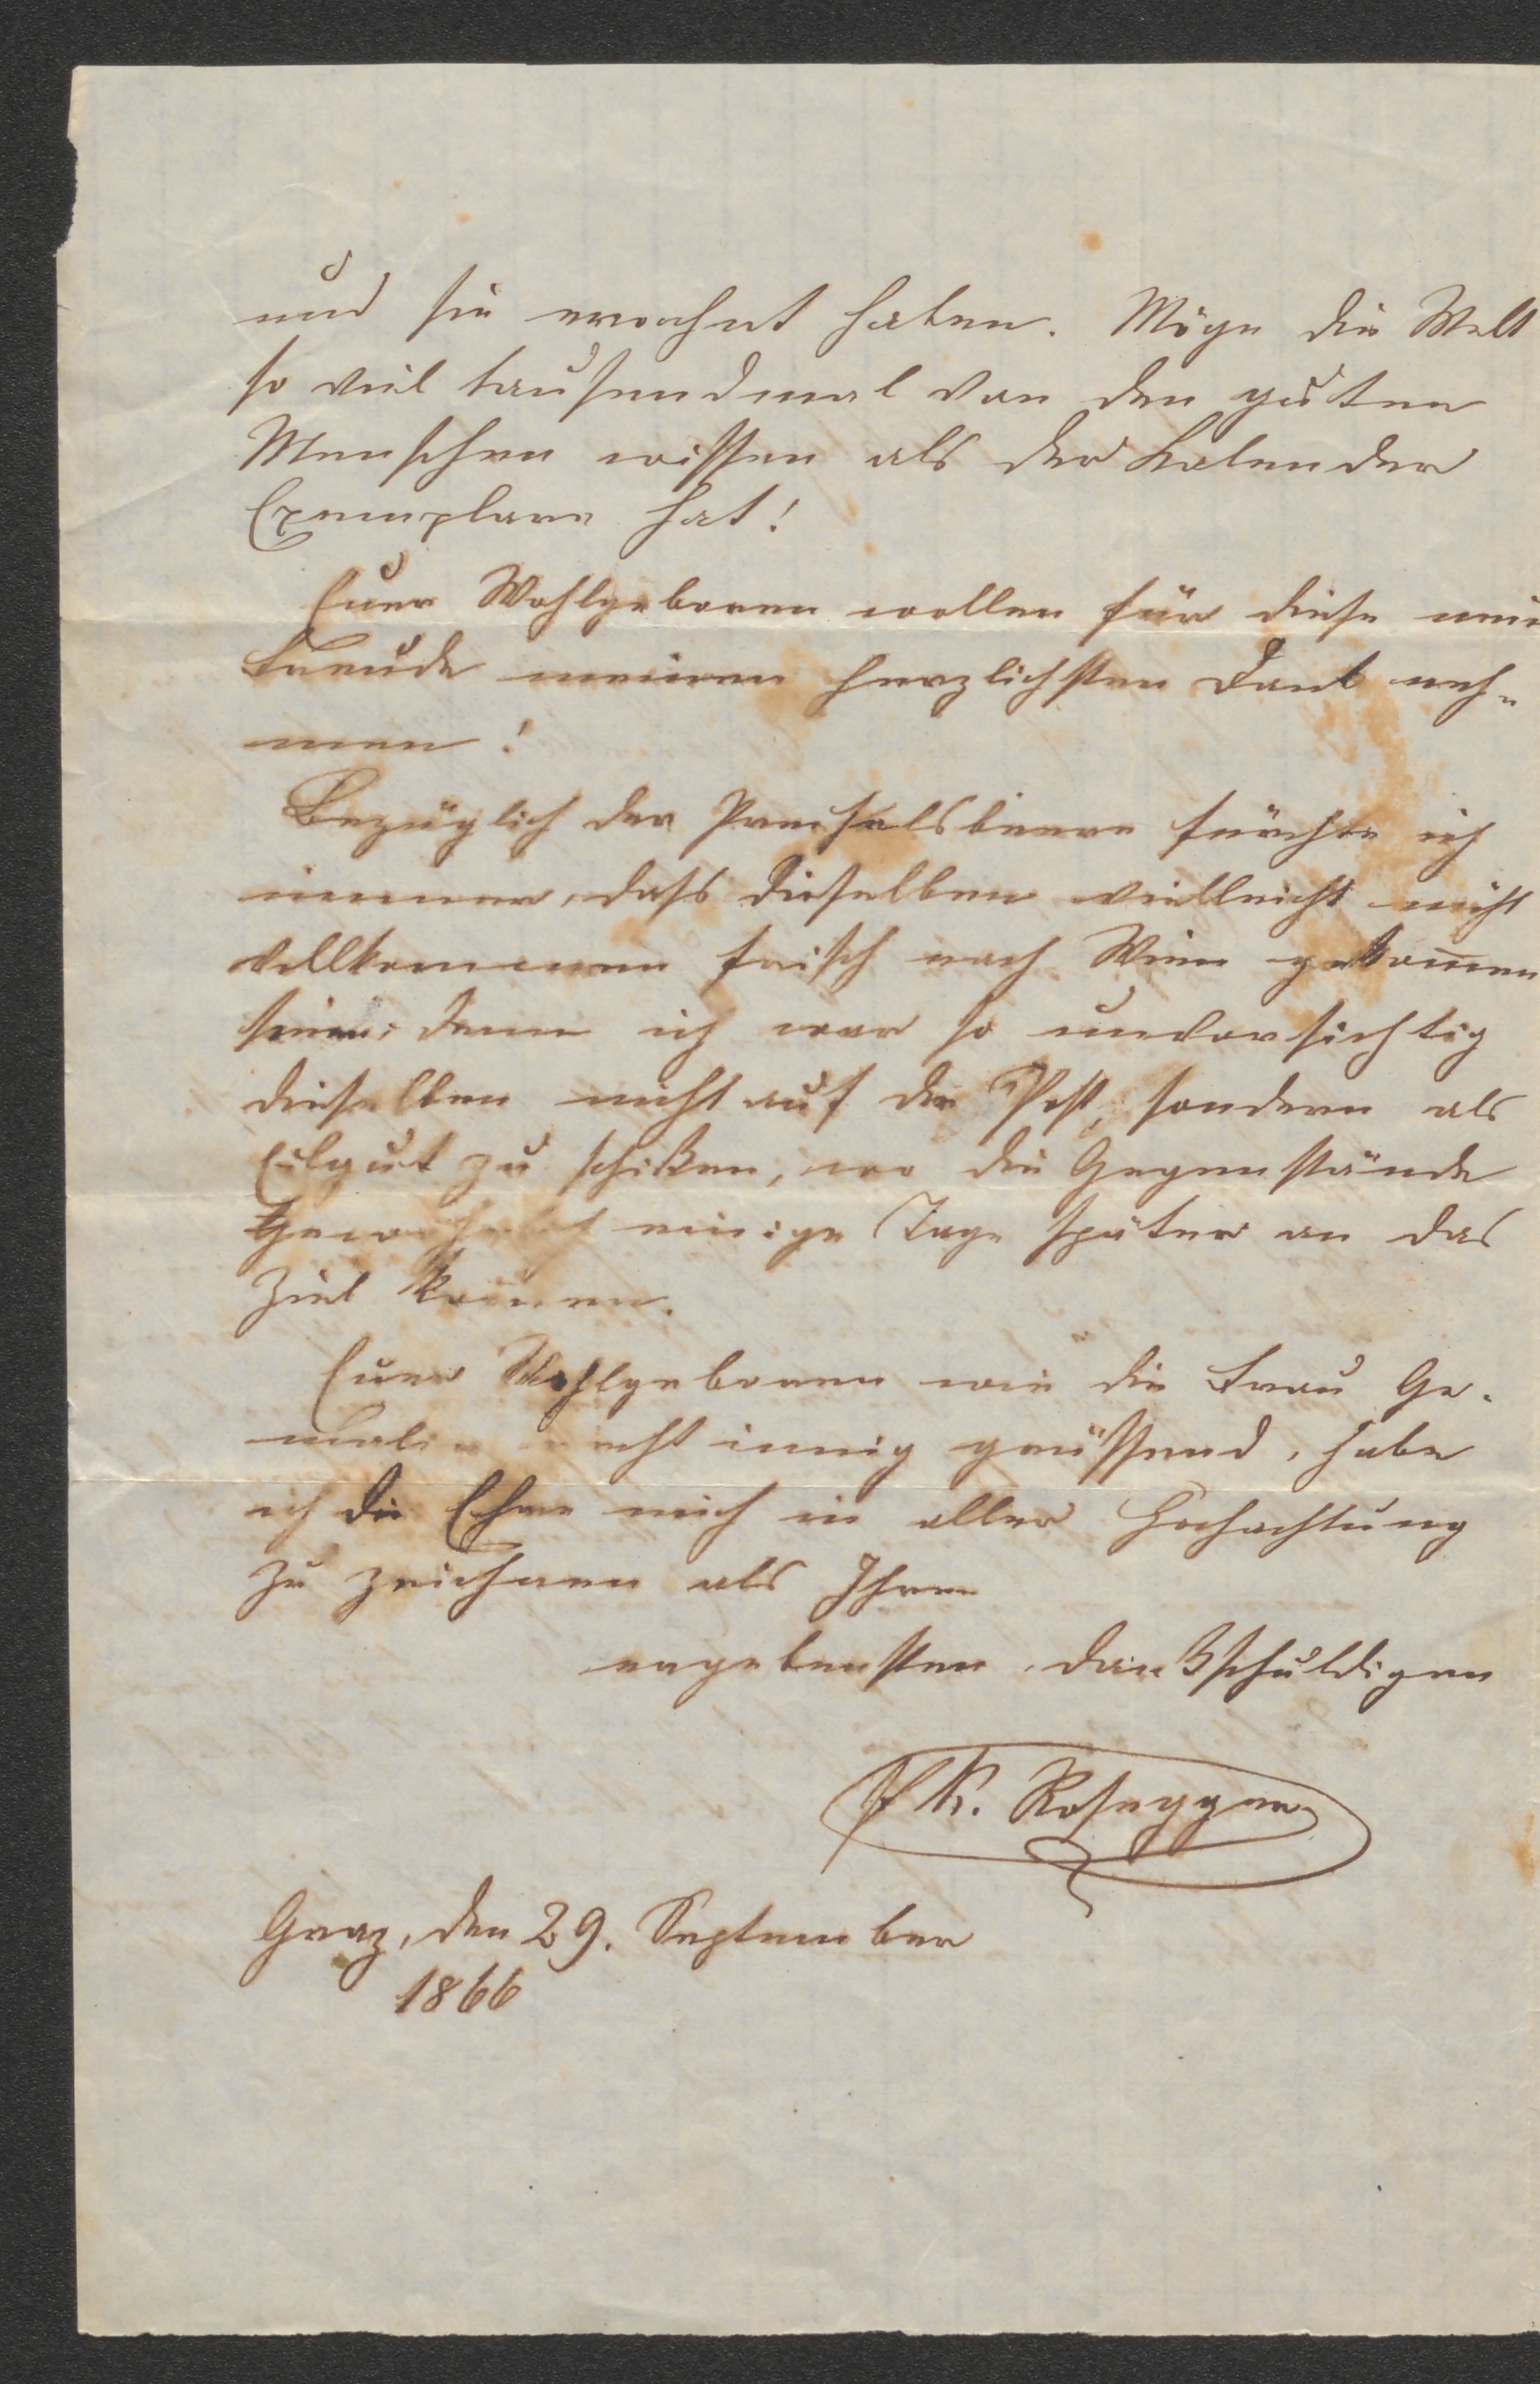 und sie erwähnt haben. Möge die Welt
so viel tausendmal von den guten
Menschen wissen als der Kalender
Exemplare hat!
Euer Wohlgeboren wollen für diese neue
Freude meinen herzlichsten Dank neh-
men!
Bezüglich der Preiselsbeere fürchte ich
immer, dass dieselben vielleicht nicht
vollkommen frisch nach Wien gekom̄en
seien; denn ich war so unvorsichtig
dieselben nicht auf die Post, sondern als
Eilgut zu schiken, wo die Gegenstände
einige Tage später an das
Ziel kom̄en.
Euer Wohlgeboren wie die Frau Ge-
malin recht innig grüssend, habe
ich die Ehre mich in aller Hochachtung
zu zeichnen als Ihren
ergebensten, dankschuldigen
PK. Rosegger
Graz, den 29. September
1866